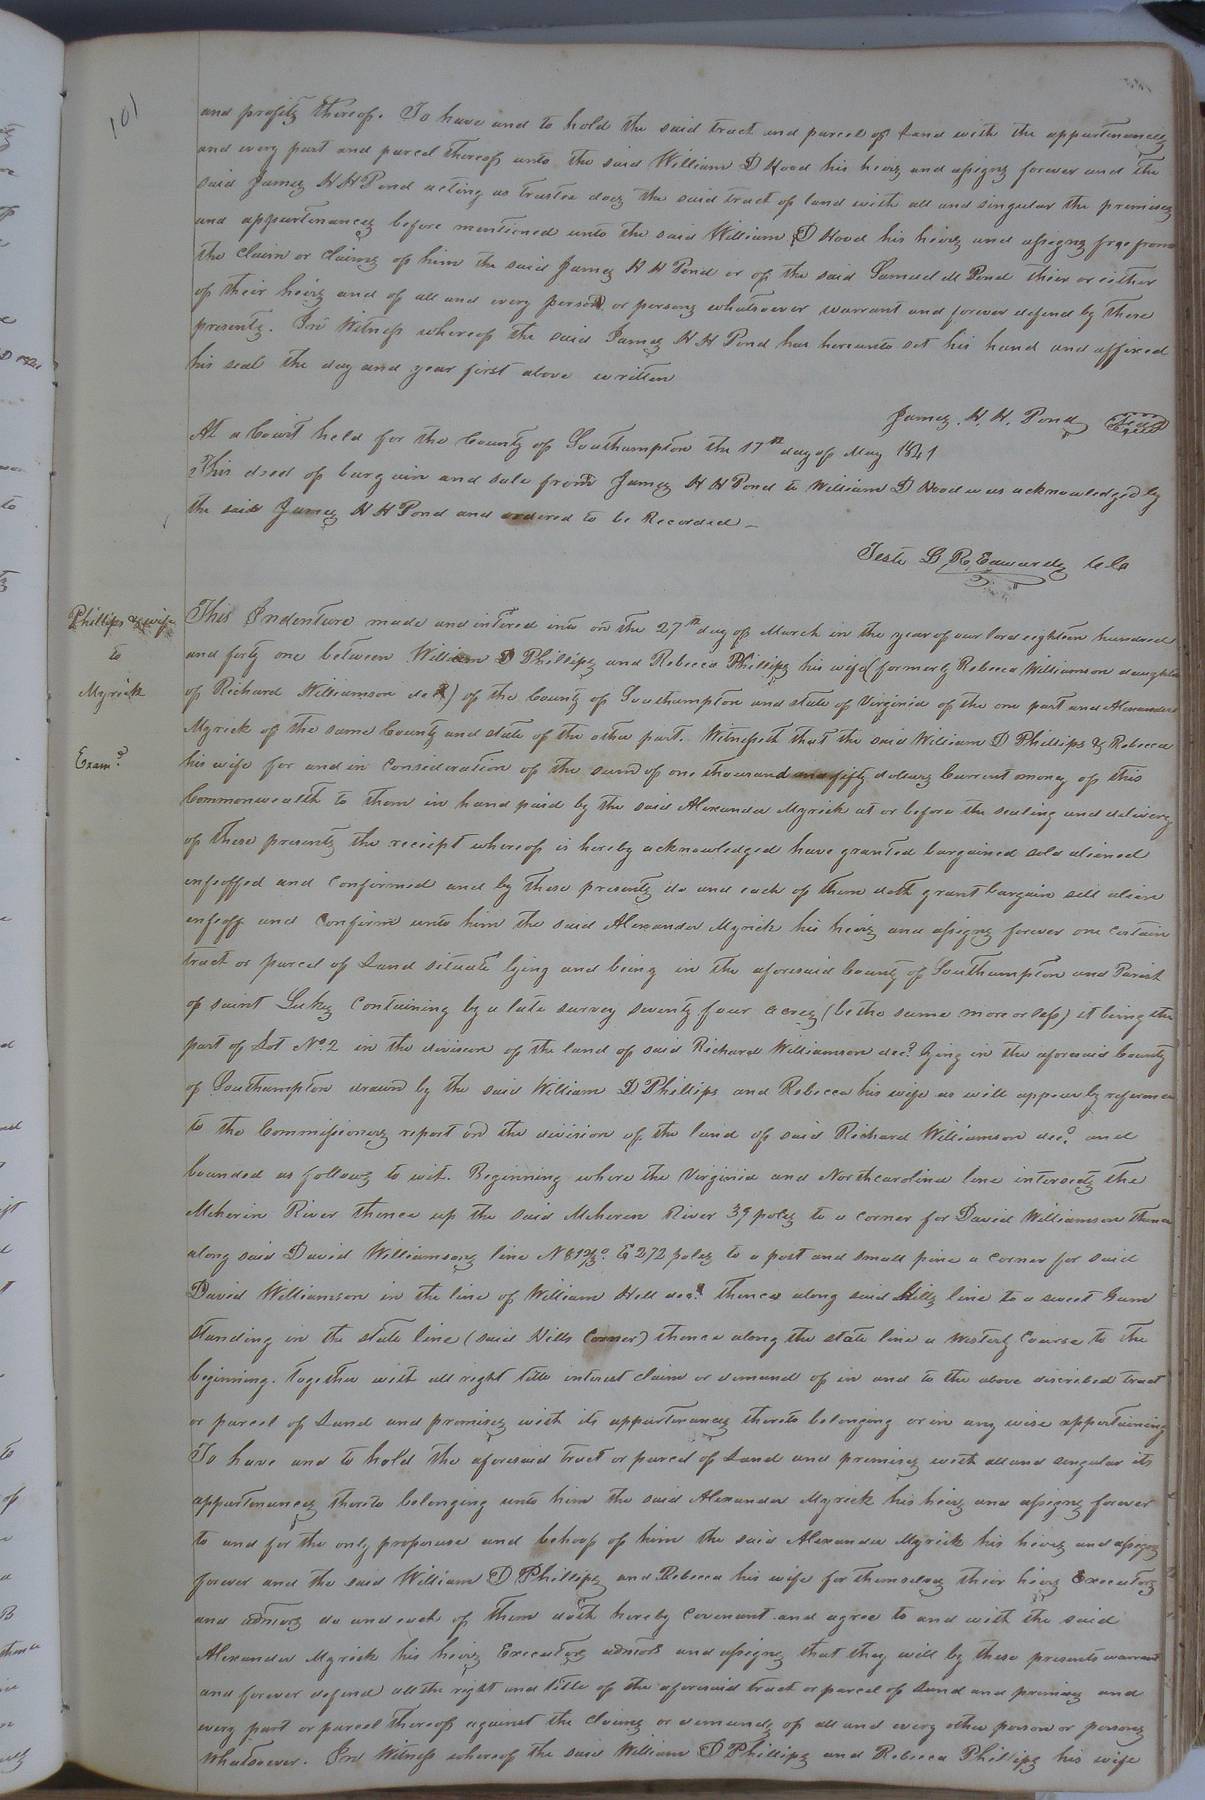 101
and profits thereof. To have and to hold the said tract and parcel of Land with the appurtenances
and every part and parcel thereof unto the said William D Hood his heirs and assigns forever and the
said James H H Pond acting as trustee does the said tract of land with all and singular the premises
and appurtenances before mentioned unto the said William D Hood his heirs and assigns free from
the claim or claims of him the said James H H Pond or of the said Samuel M Pond their or either
of their heirs and of all and every person or persons whatsoever warrant and forever defend by these
presents. In Witness whereof the said James H H Pond has hereunto set his hand and affixed
his seal the day and year first above written
James. H. H. Pond Seal
At a Court held for the County of Southampton the 17th day of May 1841
This deed of bargain and sale from James H H Pond to William D Hood was acknowledged by
the said James H H Pond and ordered to be Recorded
Teste L R Edwards C.C
Phillips & wife
to
Myrick
Examd
This Indenture made and intered into on the 27th day of March in the year of our lord eighteen hundred
and forty one between William D Phillips and Rebecca Phillips his wife (formerly Rebecca Williamson daughter
of Richard Williamson decd) of the County of Southampton and state of Virginia of the one part and Alexander
Myrick of the same County and state of the other part. Witnesseth that the said William D Phillips & Rebecca
his wife for and in Consideration of the sum of one thousand and fifty dollars Current money of this
Commonwealth to them in hand paid by the said Alexander Myrick at or before the sealing and delivery
of these presents the receipt whereof is hereby acknowledged have granted bargained sold aliened
enfeoffed and Conformed and by these presents do and each of them doth grant bargain sell alien
enfeoff and Confirm unto him the said Alexander Myrick his heirs and assigns forever one Certain
tract or parcel of Land situate lying and being in the aforesaid County of Southampton and Parish
of saint Lukes Containing by a late survey seventy four acres (be the same more or less) it being the
part of Lot No. 2 in the division of the land of said Richard Williamson decd. lying in the aforesaid County
of Southampton drawn by the said William D Phillips and Rebecca his wife as will appear by reference
to the Commissioners report on the division of the land of said Richard Williamson decd. and
bounded as follows to wit. Beginning where the Virginia and Northcarolina line intersects the
Meherin River thence up the said Meherin River 39 poles to a corner for David Williamson thence
along said David Williamsons line N 81½° E 272 poles to a post and small pine a corner for said
David Williamson in the line of William Hill decd. thence along said Hills line to a sweet Gum
standing in the state line (said Hills Corner) thence along the state line a westerly Course to the
beginning. Together with all right title interest claim or demand of in and to the above discribed tract
or parcel of Land and premises with its appurtenances thereto belonging or in any wise appertaining
To have and to hold the aforesaid tract or parcel of Land and premises with all and singular its
appurtenances thereto belonging unto him the said Alexander Myrick his heirs and assigns forever
to and for the only proper use and behoof of him the said Alexander Myrick his heirs and assigns
forever and the said William D Phillips and Rebecca his wife for themselves their heirs Executors
and admors do and each of them doth hereby Covenant and agree to and with the said
Alexander Myrick his heirs Executors admors and assigns that they will by these presents warrant
and forever defend all the right and title of the aforesaid tract or parcel of Land and premises and
every part or parcel thereof against the claims or demands of all and every other person or persons
whatsoever. In Witness whereof the said William D Phillips and Rebecca Phillips his wife